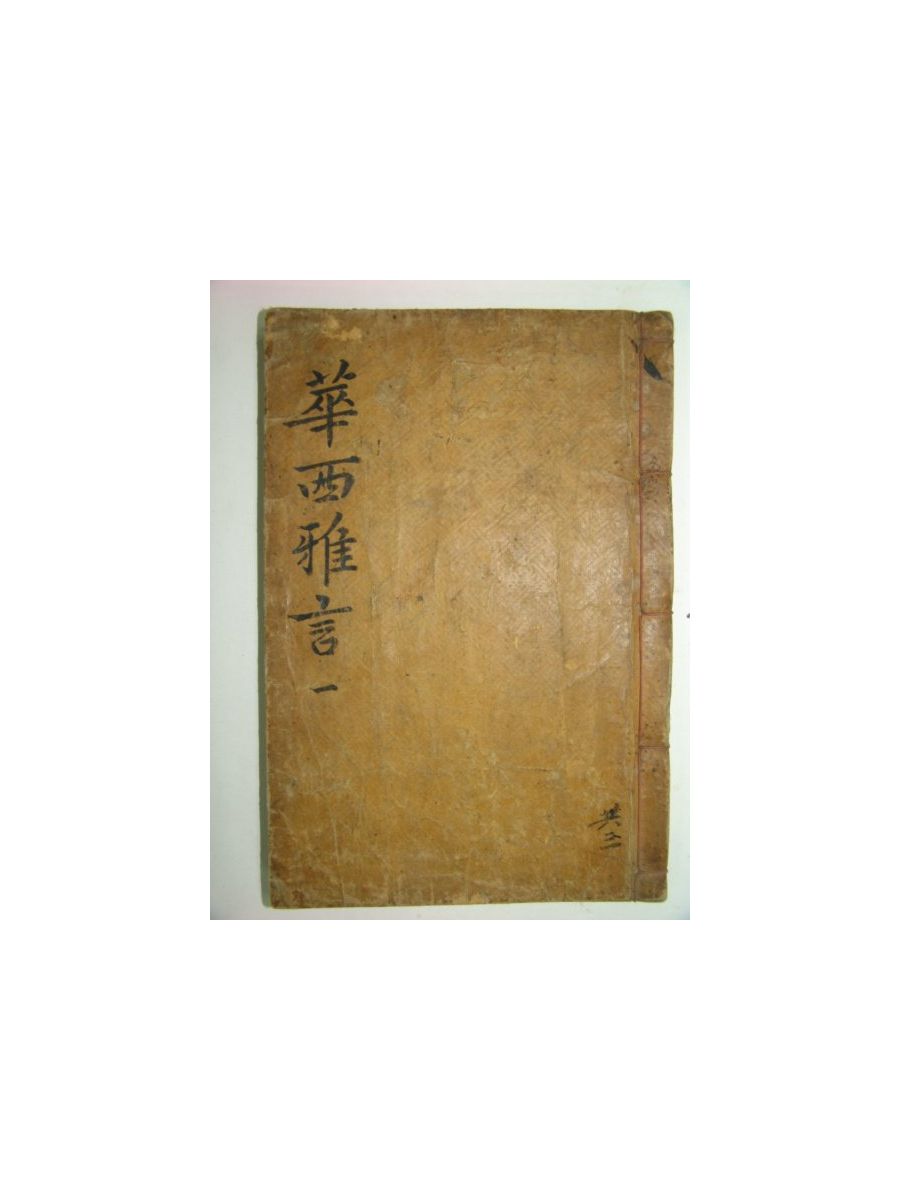 華西雅言 一
共三